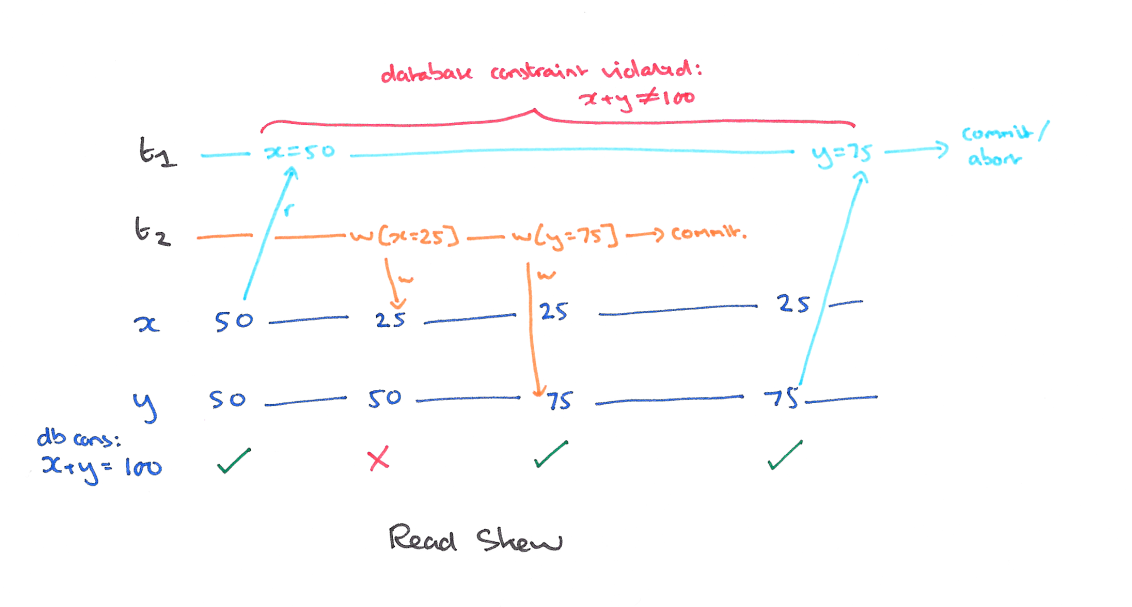 database constraint violated:
x+y≠100
t1 x=50 y=75 commit/
abort
r
t2 w[x=25] w[y=75] commit.
w w
x 50 25 25 25
y 50 50 75 75
db cons:
x+y=100 ✓ ✗ ✓ ✓
Read Skew